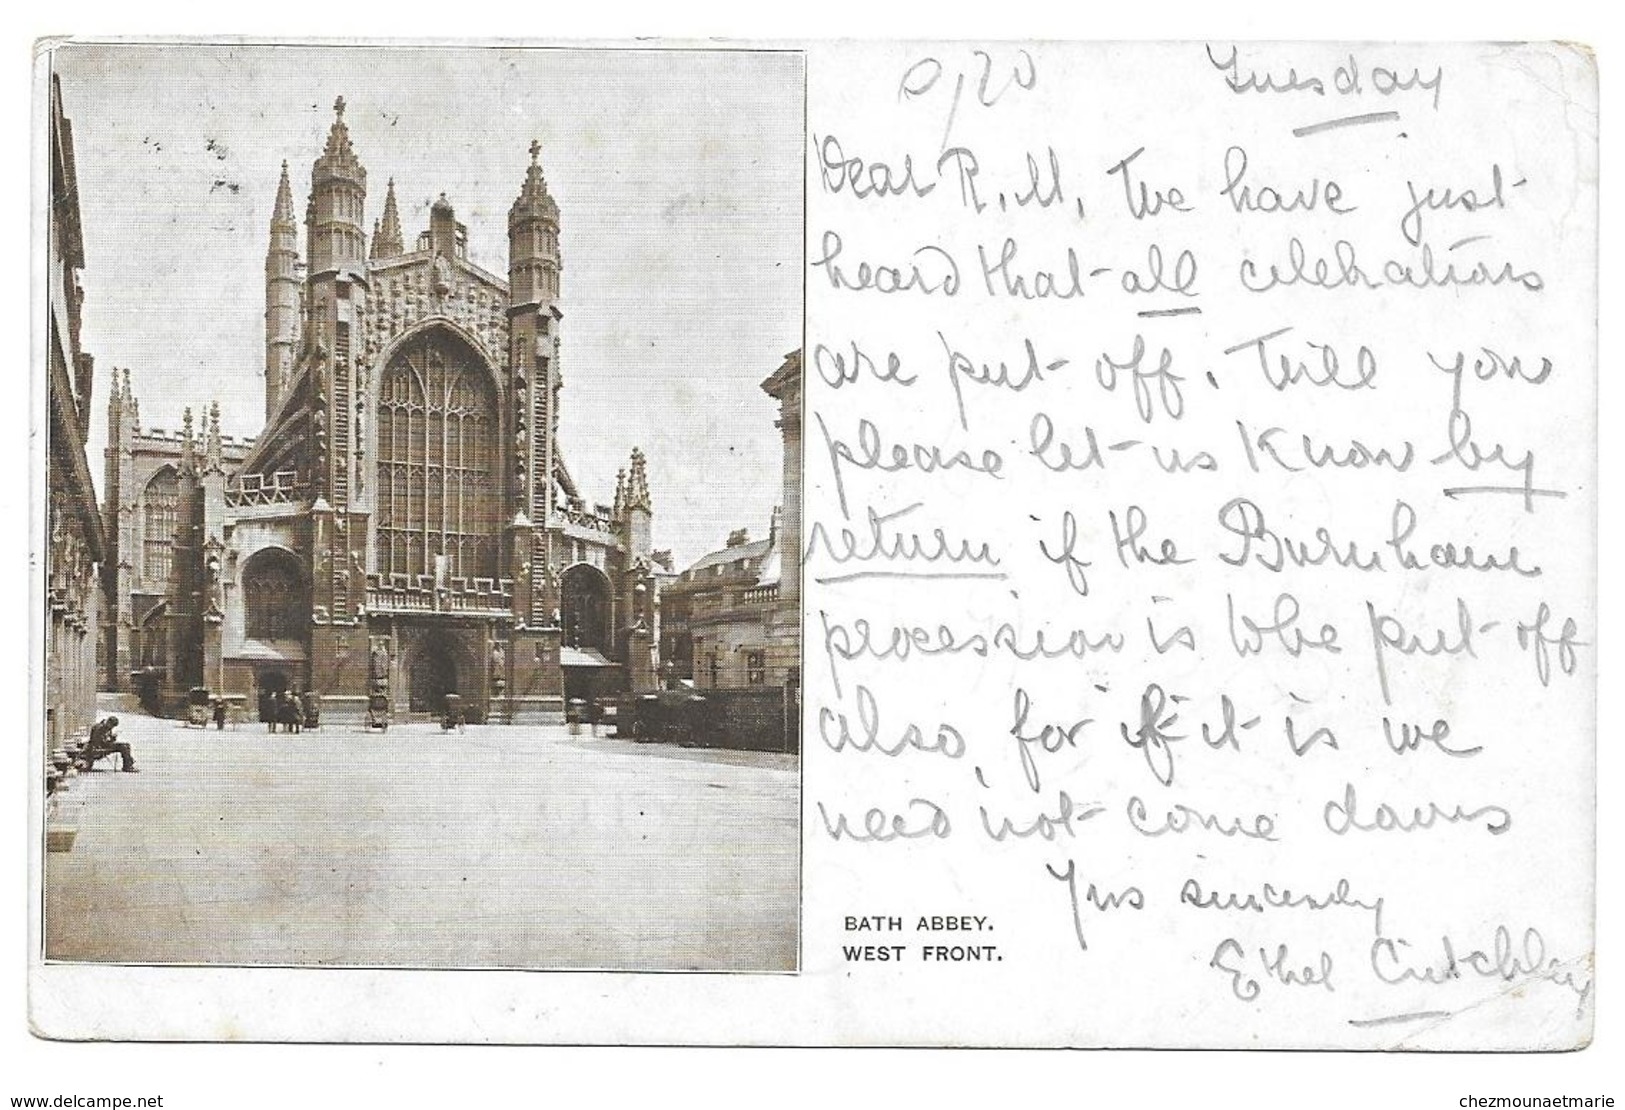 Tuesday
Dear R.M. We have just
heard that all celebrations
are put off. Will you
please let us know by
return if the Burnham
procession is to be put off
also, for if it is we
need not come down
Yrs sincerely
Ethel Critchley
BATH ABBEY.
WEST FRONT.
www.delcampe.net
chezmounaetmarie